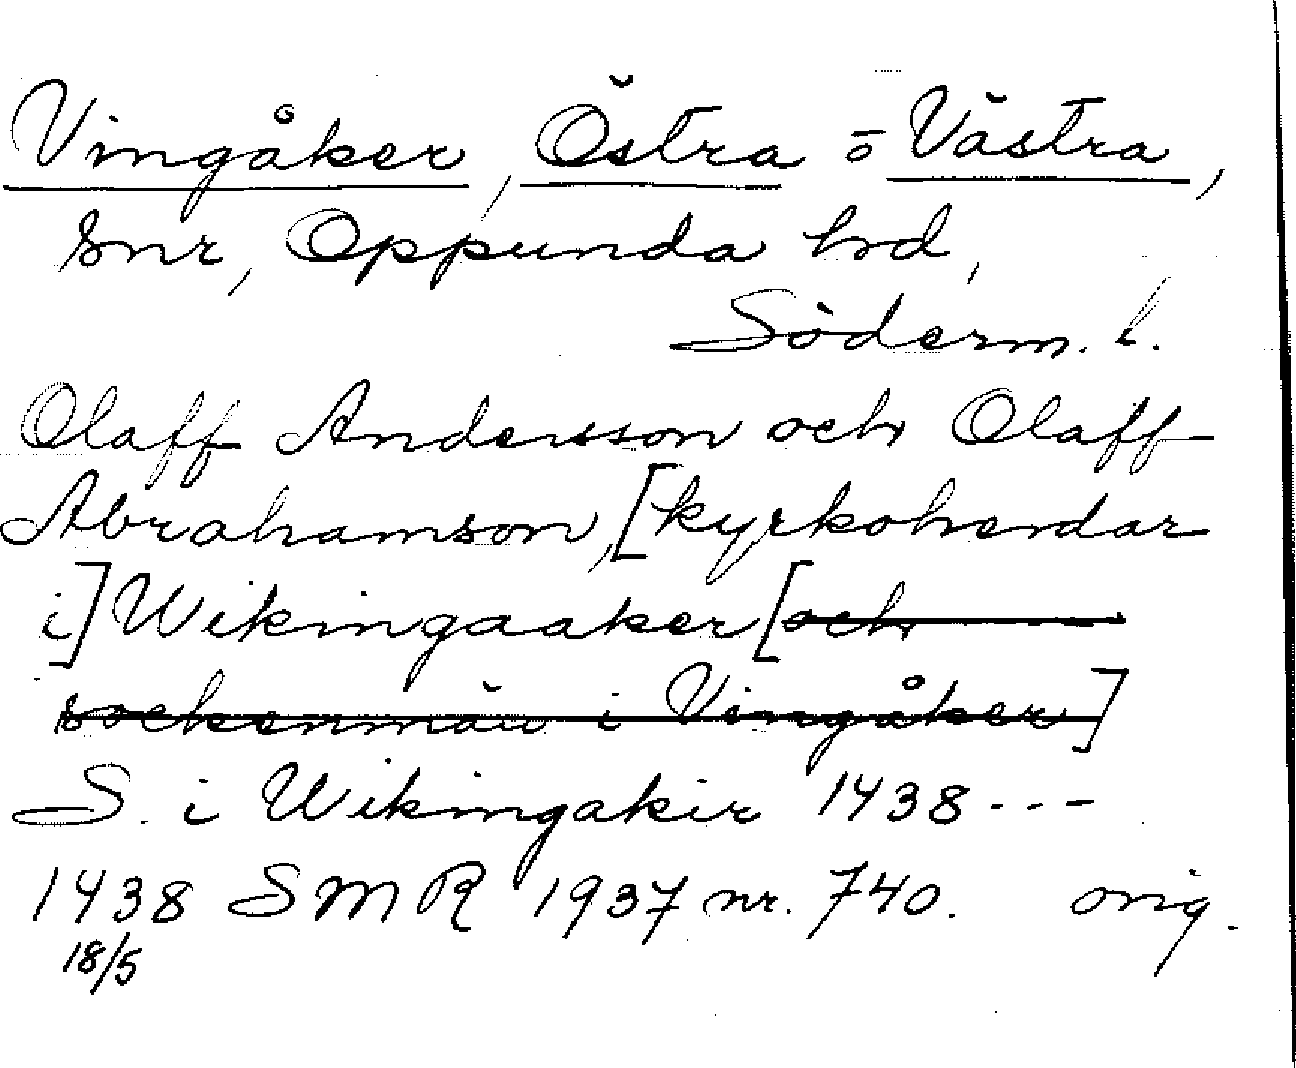 Vingåker, Östra o Västra,
snr, Oppunda hd,
Söderm. l.
Olaff Andersson och Olaff
Abrahamson, [kyrkoherdar
i] Wikingaaker [och
sockenmän i Vingåker]
S. i Wikingakir 1438---
1438 SMR 1937 nr. 740. orig.
18/5